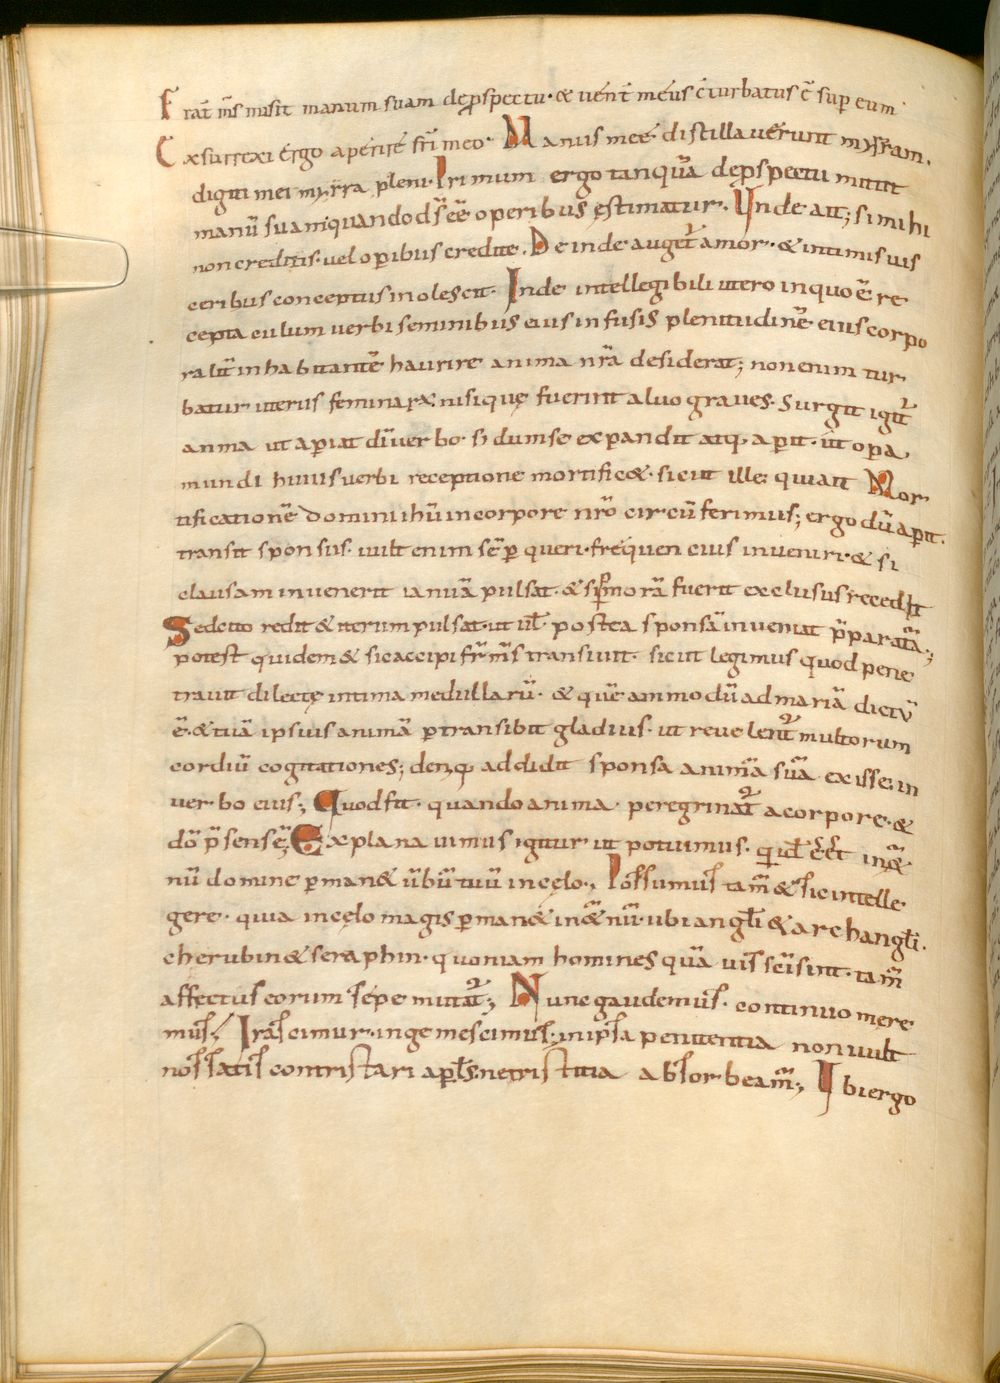 Frat̄ m̄s misit manum suam de p̱spectu · & vent̄ meus c̄turbatus ē sup̱ eum
Exsurrexi ergo aperire fr̄i meo · Manus meę distillaverunt myrram.
digiti mei myrra pleni · Primum ergo tanquā de p̱spectu mittit
manū suam quando dś eē operibus ęstimatur. Unde ait; si mihi
non creditis · vel operibus credite. Deinde auget̄ amor · & intimis vis
ceribus conceptus inolescit. Inde intellegibili utero in quo ē re
ceptaculum verbi seminibus eius infusis plenitudinē eius corpo
ralit̄ inhabitantē haurire anima nr̄a desiderat; non enim tur
batur uterus feminaræ · nisi quę fuerint alvo graves. Surgit igit̄
anima ut ap̱iat d̄m verbo · si dum se expandit atq; ap̱it · ut op̱a
mundi huius verbi receptione mortific& · sicut ille qui ait Mor
tificationē domini ihū in corpore nr̄o circū ferimus; ergo dū ap̱it ·
transit sponsus · vult enim semp̱ queri · frequen eius inveniri · & si
clausam invenerit ianuā pulsat · & si p̱ morā fuerit exclusus recedit
Sed cito redit & iterum pulsat · ut ul̄ postea sponsā inveniat p̄paratā ·;
potest quidem & sic accipi fr̄ m̄s transivit · sicut legimus quod pene
travit dilectę intima medullarū · & quē ammodū ad mariā dictū
ē · & tuā ipsius animā p̱transibit gladius · ut revelent̄ multorum
cordiū cogitationes; deniq; addidit sponsa animā suā exisse in
verbo eius; Quod fit · quando anima peregrinat̄ a corpore · &
dō p̄sens ē; Explanavimus igitur ut potuimus · quid ēēt in ǣt
nū domine p̱man& v̄bū tuū in cęlo ·; Possumus tam̄ & sic intelle
gere · quia in cęlo magis p̱man& in ǣt nū · ubi angl̄i & archangl̄i ·
cherubin & seraphin · quoniam homines quā vis sc̄i sint · tam̄
affectus eorum sepe mutat̄; Nunc gaudemus · continuo mere
mus; Irascimur · ingemescimus · in ipsa penitentia non vult
nos satis contristari apl̄s · ne tristitia absorbeam̄; Ibi ergo